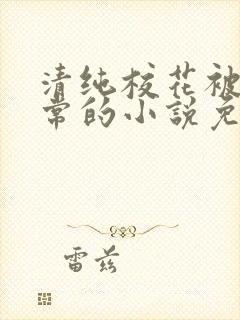 清纯校花被
常的小説免
雷兹